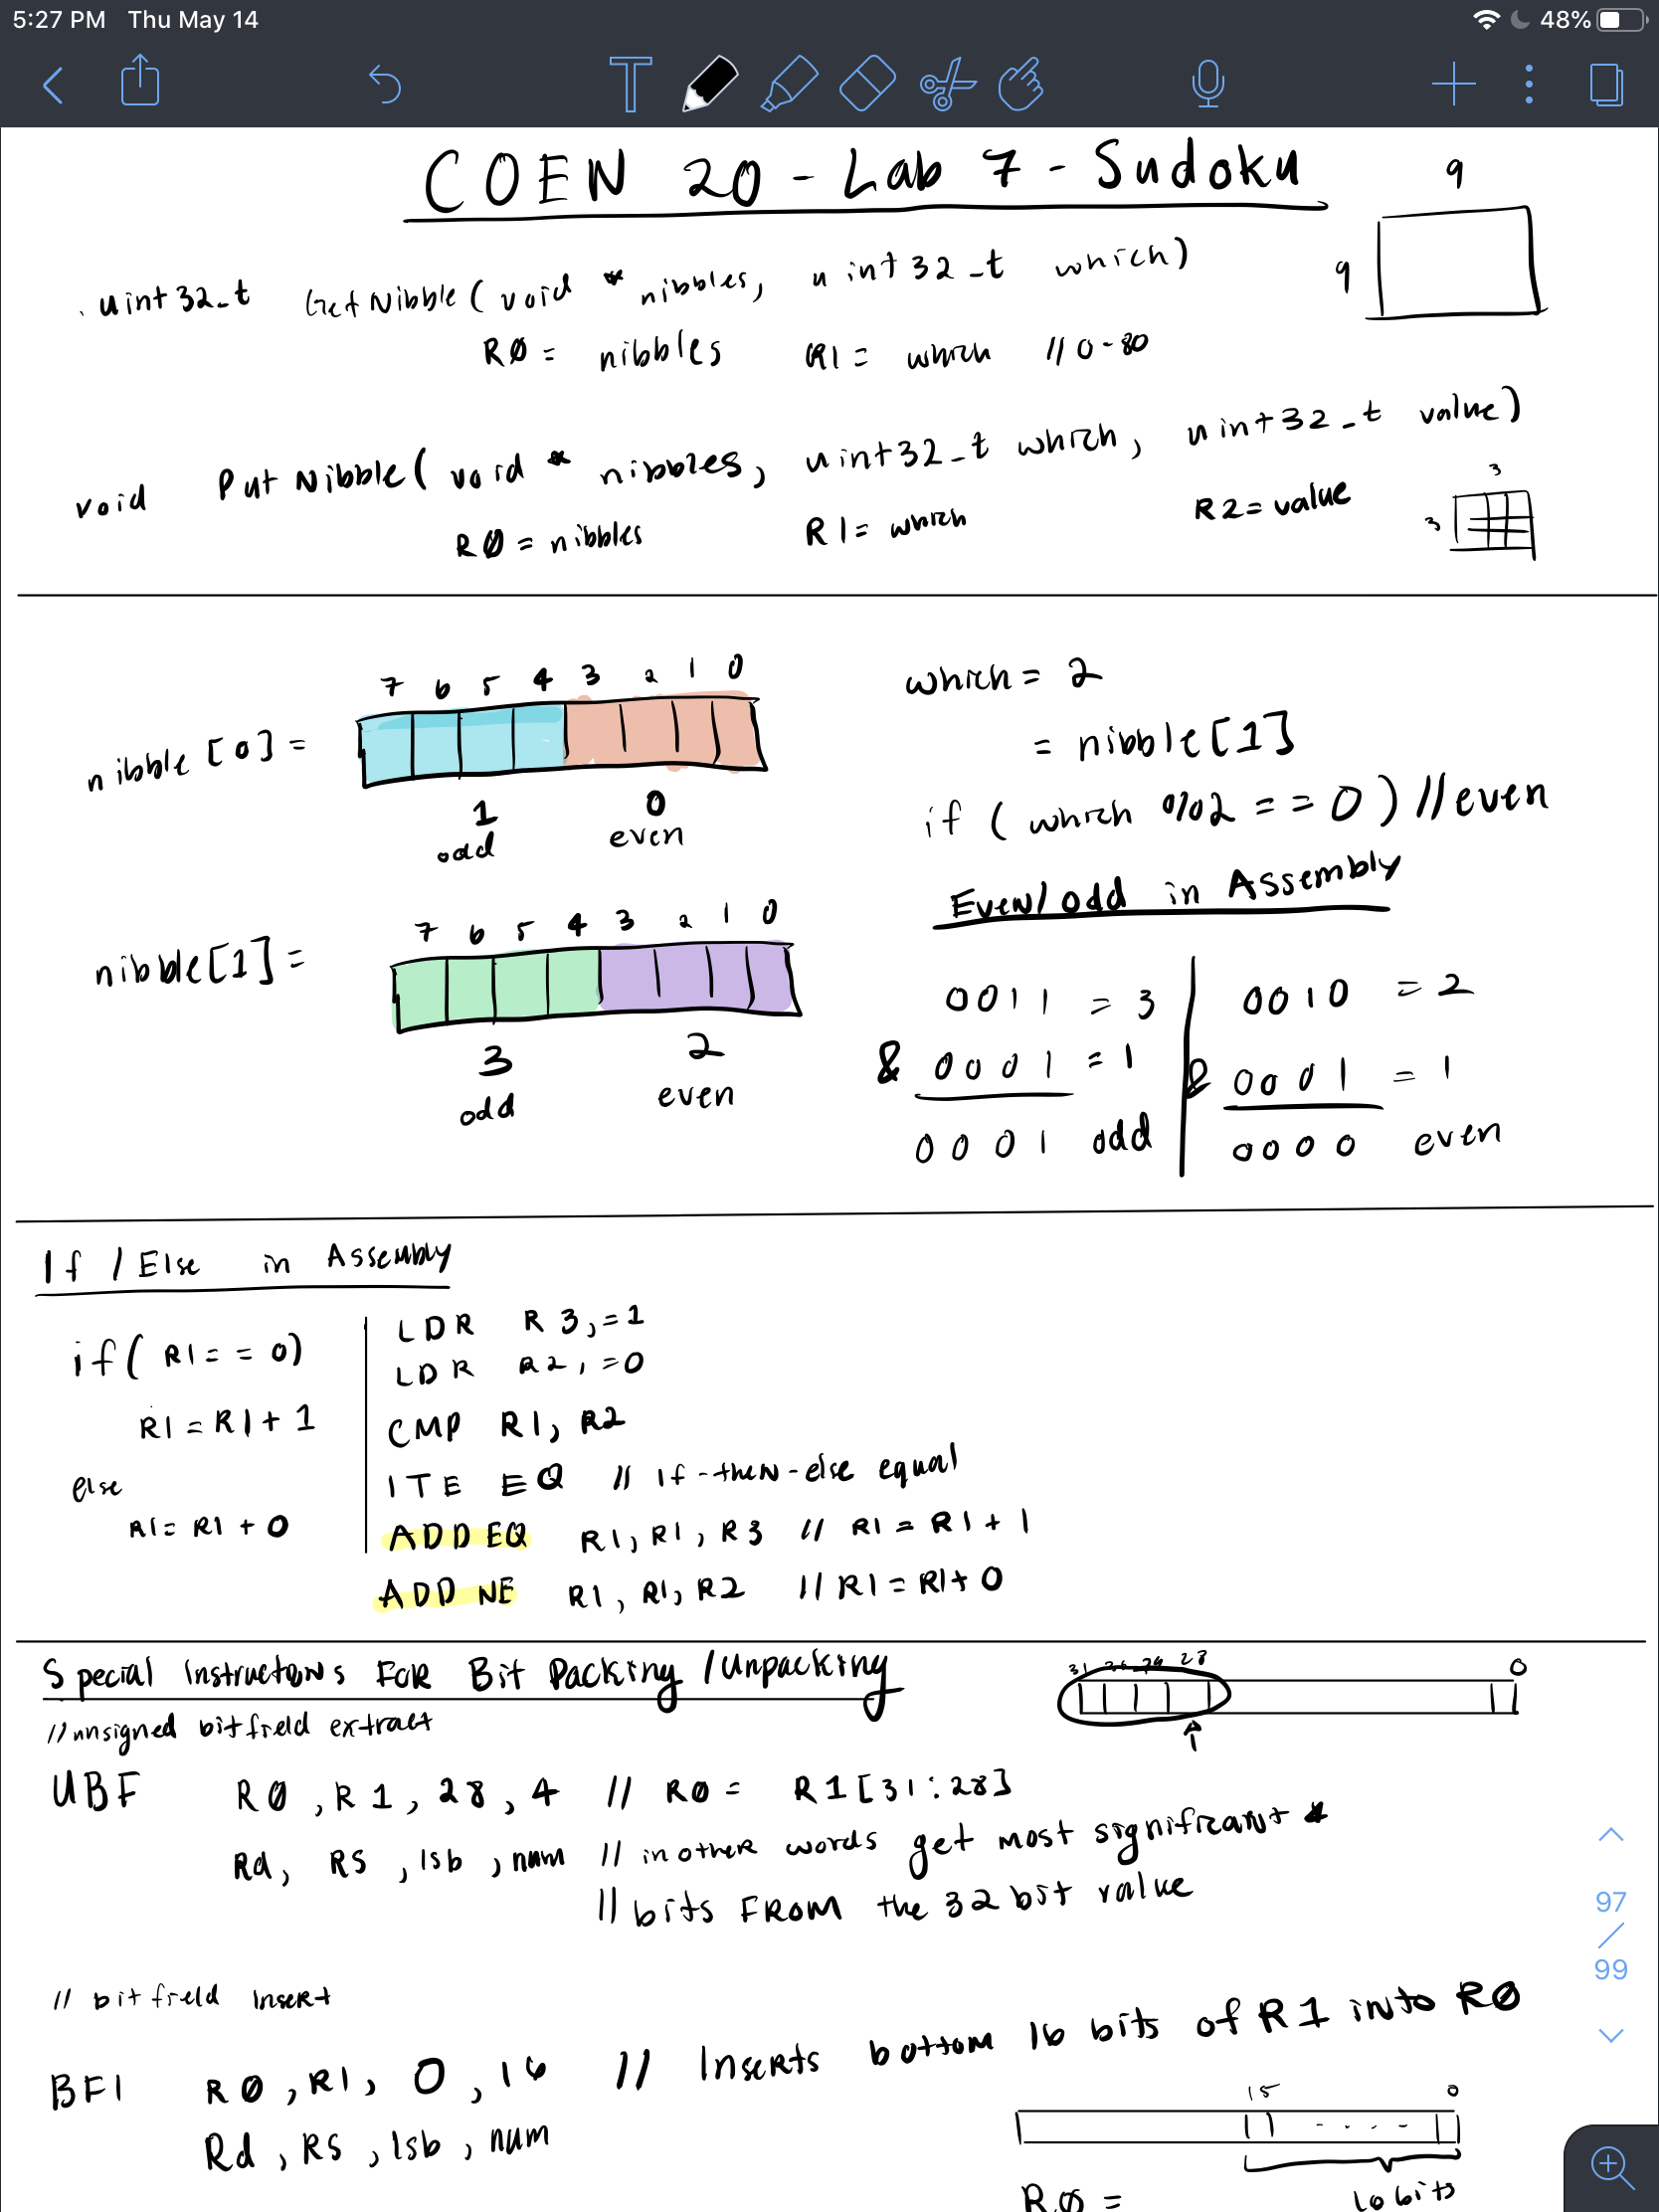 5:27 PM Thu May 14
48%
COEN 20 - Lab 7 - Sudoku
9
9
uint32_t GetNibble( void * nibbles, uint32_t which)
RØ = nibbles R1 = which // 0-80
void PutNibble( void * nibbles, uint32_t which, uint32_t value)
RØ = nibbles R1 = which R2 = value
3
3
7 6 5 4 3 2 1 0
nibble [0] =
1 0
odd even
7 6 5 4 3 2 1 0
nibble[1] =
3 2
odd even
which = 2
= nibble[1]
if ( which %2 == 0 ) // even
Even/odd in Assembly
0011 = 3
& 0001 = 1
0001 odd
0010 = 2
& 0001 = 1
0000 even
If / Else in Assembly
if( R1 == 0)
R1 = R1 + 1
else
R1 = R1 + 0
LDR R3, =1
LDR R2, =0
CMP R1, R2
ITE EQ // If-then-else equal
ADDEQ R1, R1, R3 // R1 = R1 + 1
ADDNE R1, R1, R2 // R1 = R1 + 0
Special Instructions For Bit Packing / Unpacking
31 29 28 0
// unsigned bitfield extract
UBF RØ, R1, 28, 4 // RØ = R1[31:28]
Rd, RS, lsb, num // in other words get most significant 4
// bits FROM the 32 bit value
97
/
99
// bit field Insert
BFI RØ, R1, 0, 16 // Inserts bottom 16 bits of R1 into RØ
Rd, RS, lsb, num
15 0
RØ = 16 bits